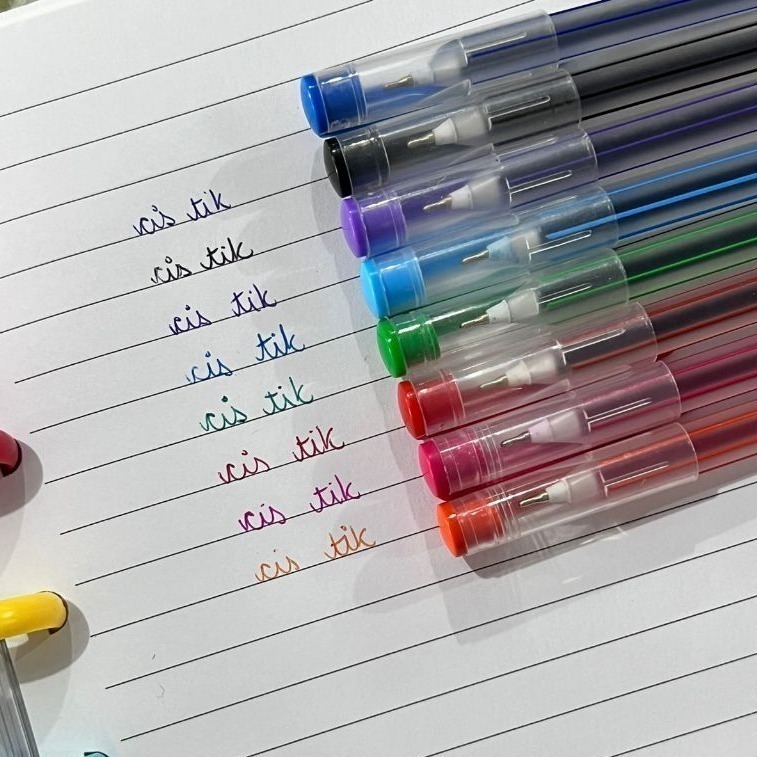 cis tik
cis tik
cis tik
cis tik
cis tik
cis tik
cis tik
cis tik